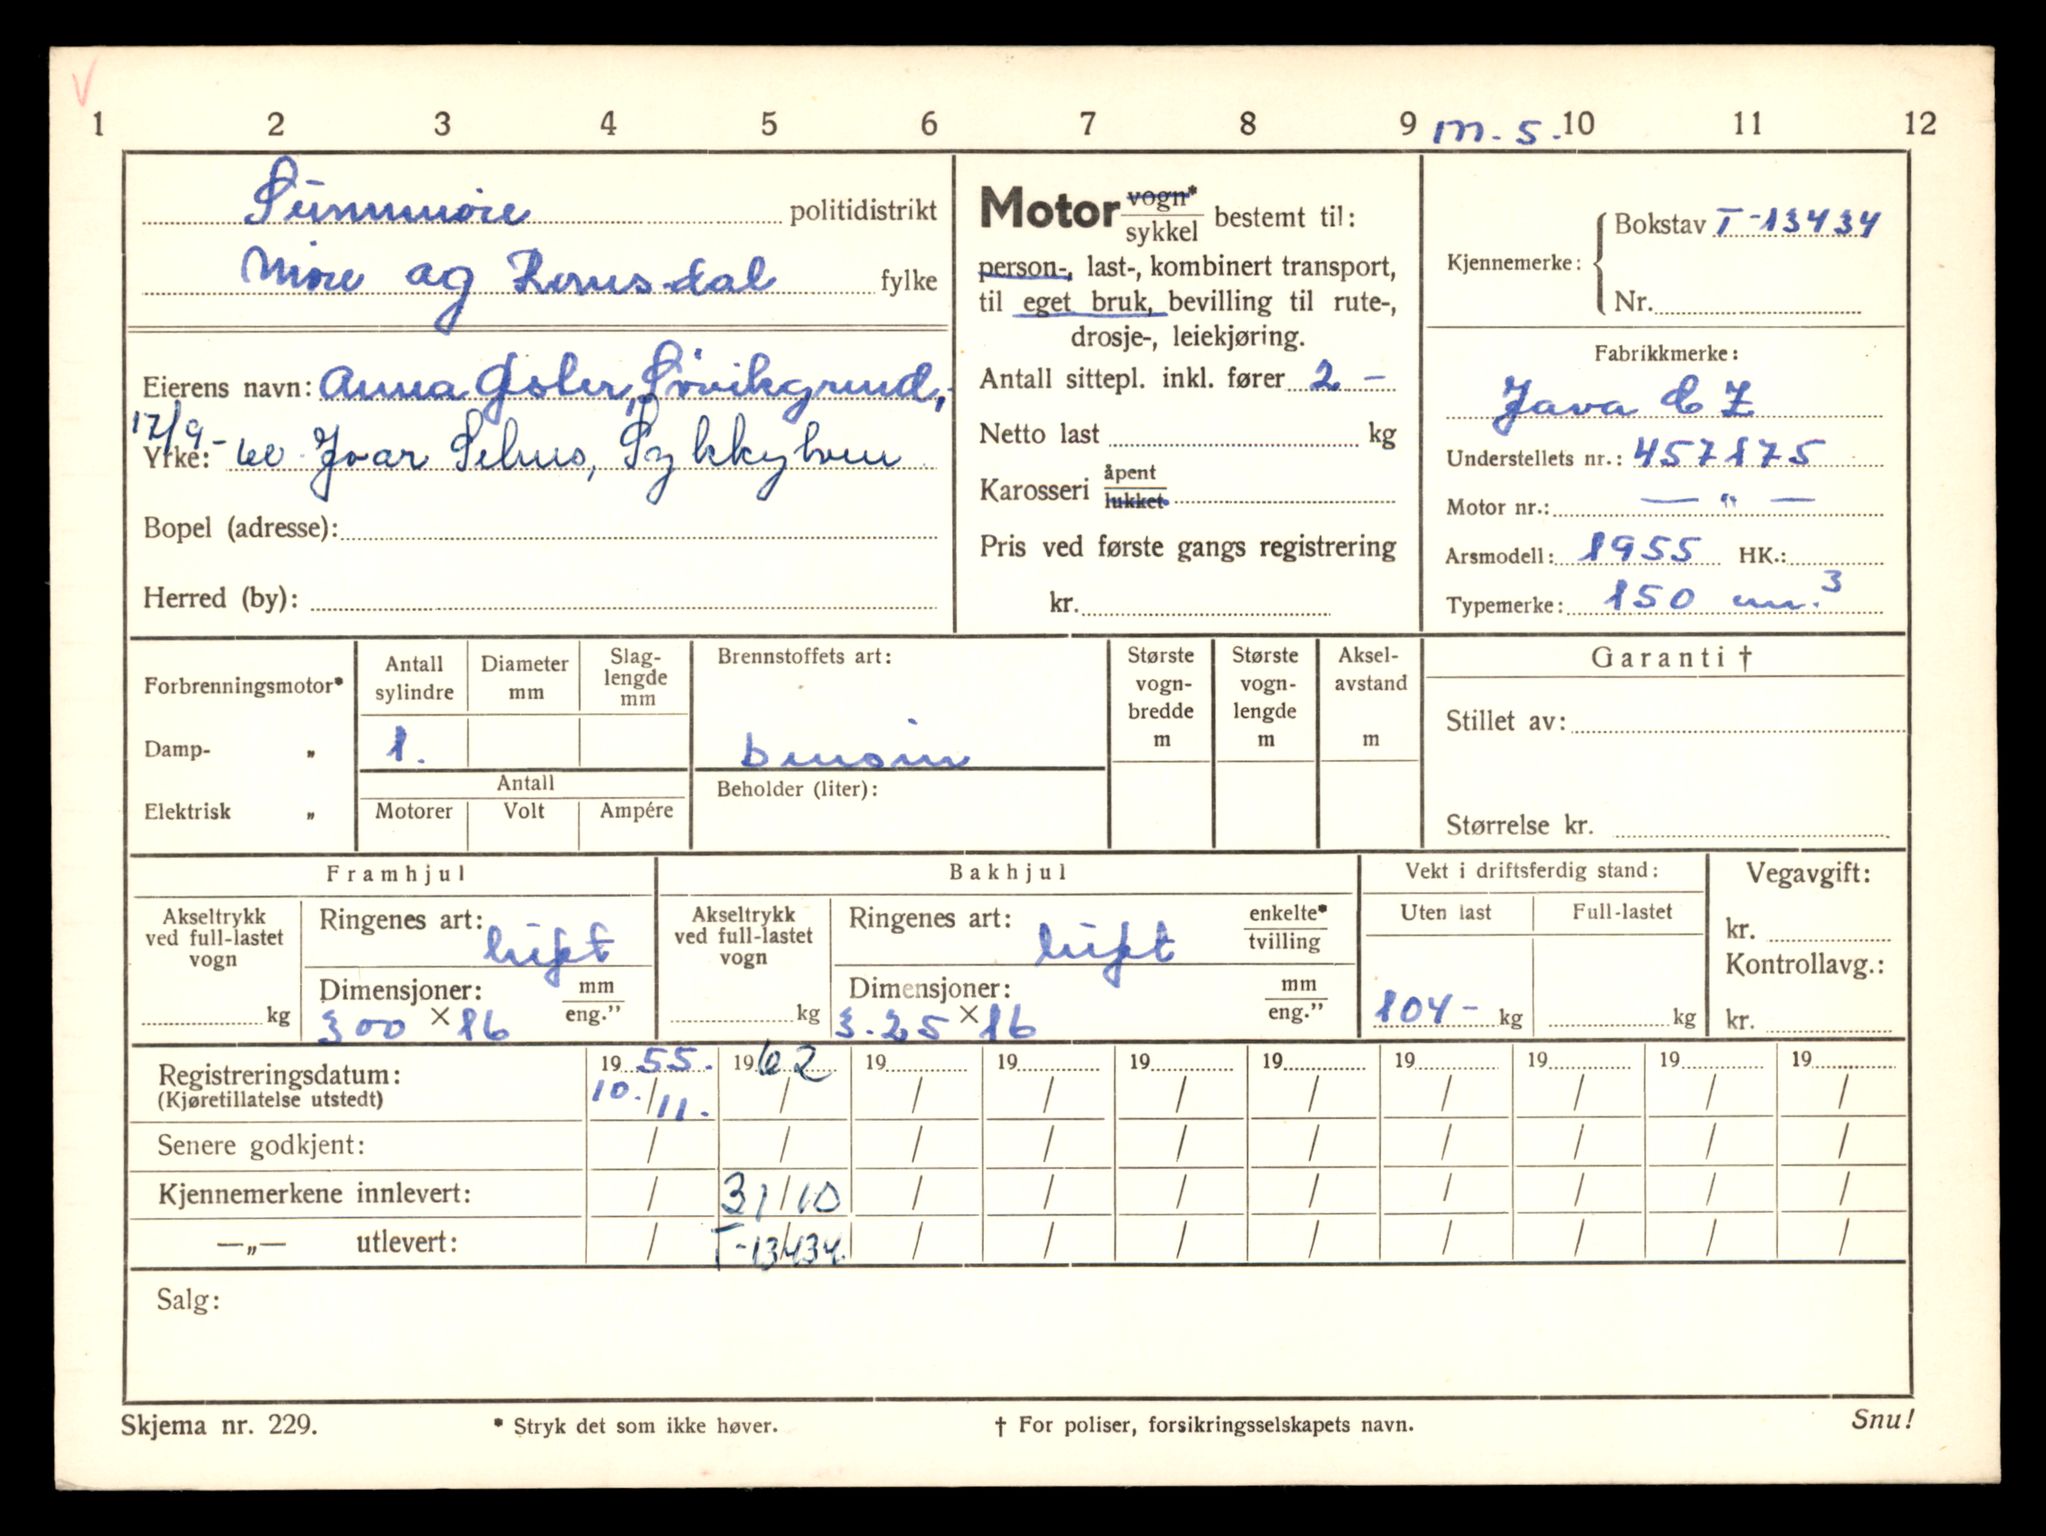 V
1 2 3 4 5 6 7 8 9 m.s. 10 11 12
Sunnmøre politidistrikt
Møre og Romsdal fylke
Eierens navn: Anna Søvikgrund,
17/9 -
Yrke: Ivar Sykkylven
Bopel (adresse):
Herred (by):
Motor vogn* / sykkel bestemt til:
person-, last-, kombinert transport,
til eget bruk, bevilling til rute-,
drosje-, leiekjøring.
Antall sittepl. inkl. fører 2 -
Netto last kg
Karosseri åpent / lukket
Pris ved første gangs registrering
kr.
Kjennemerke: Bokstav T-13434
Nr.
Fabrikkmerke:
Java CZ
Understellets nr.: 457175
Motor nr.: — " —
Årsmodell: 1955 HK.:
Typemerke: 150 cm.3
Forbrenningsmotor*
Damp- „
Elektrisk „
Antall sylindre
1.
Diameter mm
Slag-
lengde
mm
Antall
Motorer Volt Ampére
Brennstoffets art:
bensin
Beholder (liter):
Største
vogn-
bredde
m
Største
vogn-
lengde
m
Aksel-
avstand
m
Garanti †
Stillet av:
Størrelse kr.
Framhjul
Akseltrykk
ved full-lastet
vogn
kg
Ringenes art: luft
Dimensjoner: mm / eng."
300 × 16
Bakhjul
Akseltrykk
ved full-lastet
vogn
kg
Ringenes art: luft enkelte* / tvilling
Dimensjoner: mm / eng."
3.25 × 16
Vekt i driftsferdig stand:
Uten last Full-lastet
104 - kg kg
Vegavgift:
kr.
Kontrollavg.:
kr.
Registreringsdatum: 19 55. 19 62 19 19 19 19 19 19 19 19
(Kjøretillatelse utstedt) 10./11. / / / / / / / / /
Senere godkjent: / / / / / / / / / /
Kjennemerkene innlevert: / 31/10 / / / / / / / /
—„— utlevert: / T-13434. / / / / / / / /
Salg:
Skjema nr. 229. * Stryk det som ikke høver. † For poliser, forsikringsselskapets navn. Snu!